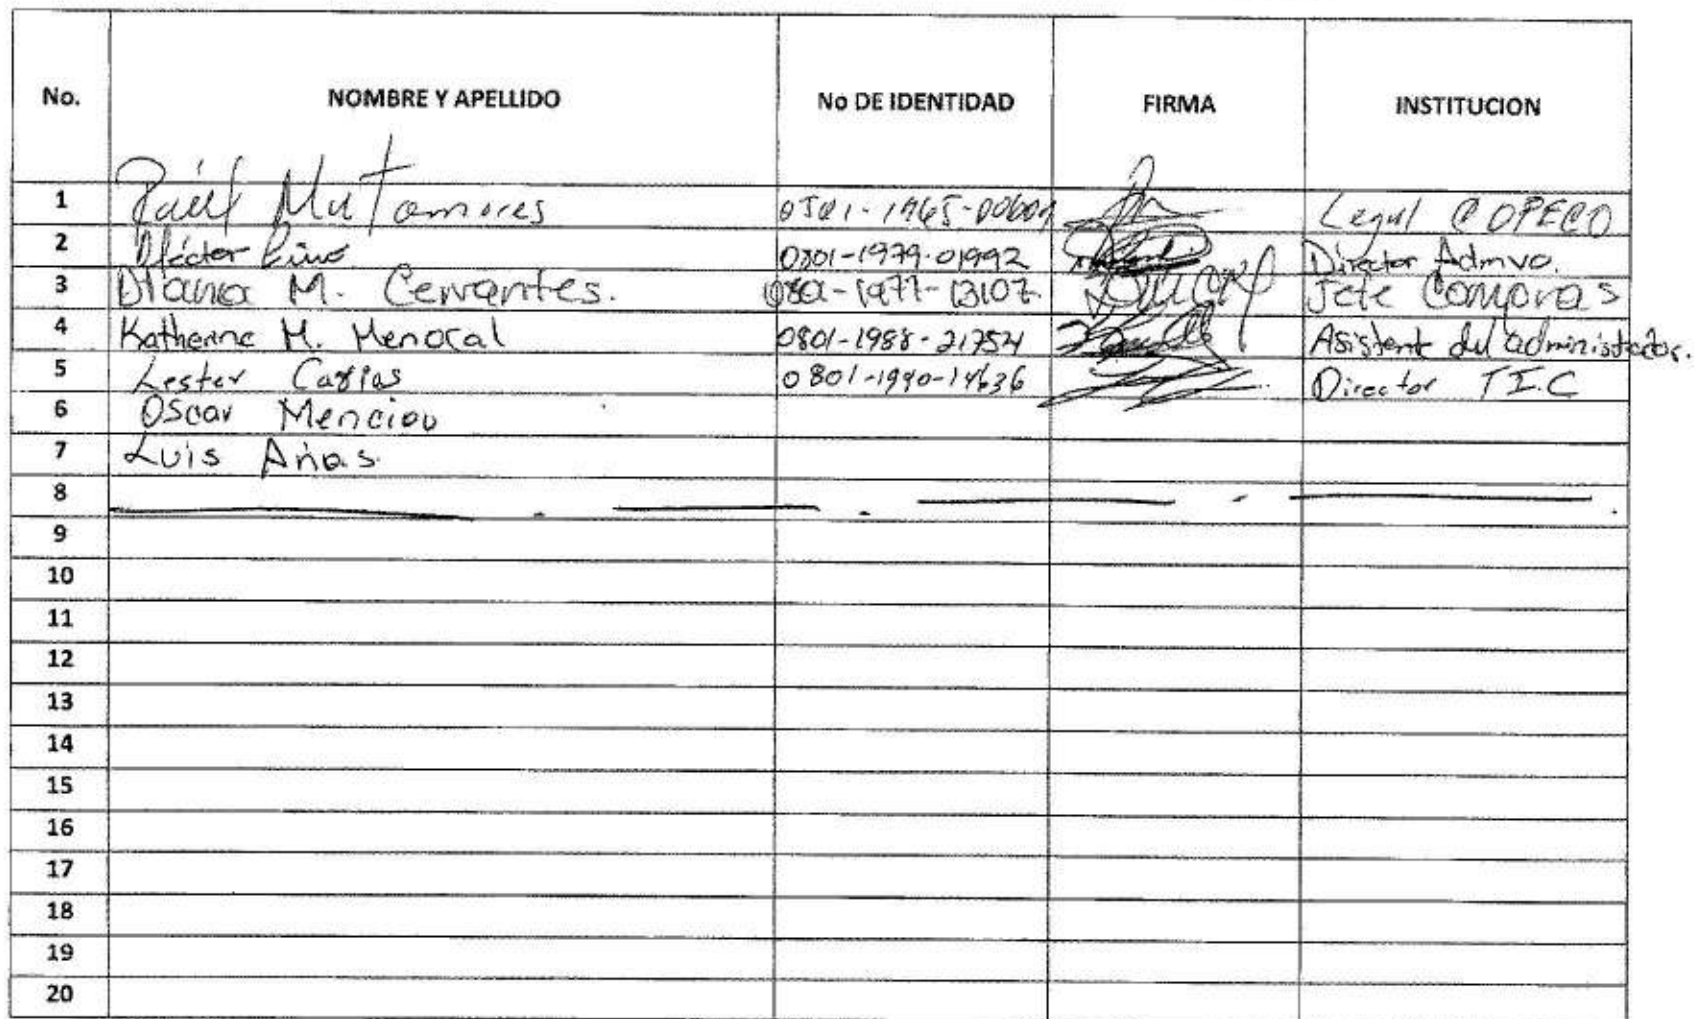 No. NOMBRE Y APELLIDO No DE IDENTIDAD FIRMA INSTITUCION
1 Raúl Matamores Legal COPECO
2 Héctor Lino 0801-1979-01992 Director Admvo.
3 Diana M. Cervantes. 0801-1977-13107 Jefe Compras
4 Katherine M. Menocal 0801-1988-21754 Asistente del administrador.
5 Lester Carias 0801-1990-14636 Director T.I.C
6 Oscar Mencion
7 Luis Arias.
8
9
10
11
12
13
14
15
16
17
18
19
20